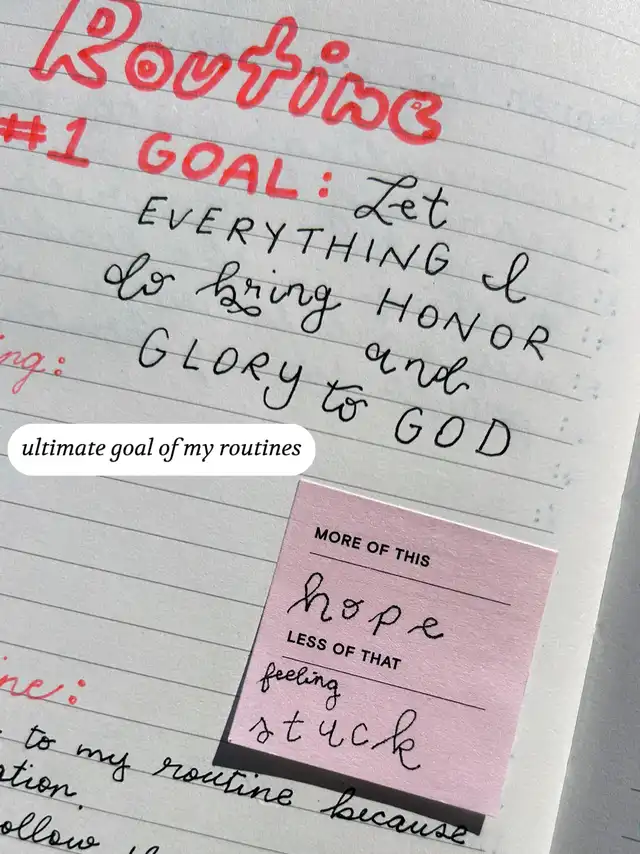 Routine
#1 GOAL: Let
EVERYTHING I
do bring HONOR
and
GLORY to GOD
ultimate goal of my routines
MORE OF THIS
hope
LESS OF THAT
feeling
stuck
to my routine because